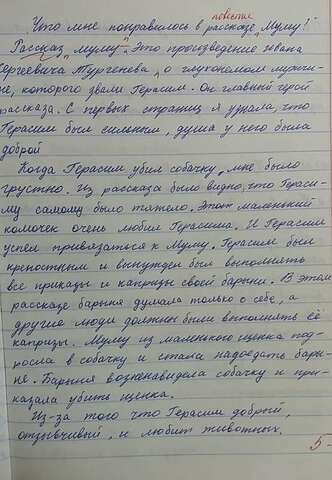 повести
Что мне понравилось в рассказе „Муму"?
Рассказ „Муму". Это произведение Ивана
Сергеевича Тургенева, о глухонемом мужчи-
не, которого звали Герасим. Он главный герой
рассказа. С первых страниц я узнала, что
Герасим был сильным, душа у него была
доброй
Когда Герасим убил собачку, мне было
грустно. Из рассказа было видно, что Гераси-
му самому было тяжело. Этот маленький
комочек очень любил Герасима. И Герасим
успел привязаться к Муму. Герасим был
крепостным и вынужден был выполнять
все приказы и капризы своей барыни. В этом
рассказе барыня думала только о себе, а
другие люди должны были выполнять её
капризы. Муму из маленького щенка под-
росла в собачку и стала надоедать бары-
не. Барыня возненавидела собачку и при-
казала убить щенка.
Из-за того что Герасим добрый,
отзывчивый, и любит животных.
5-